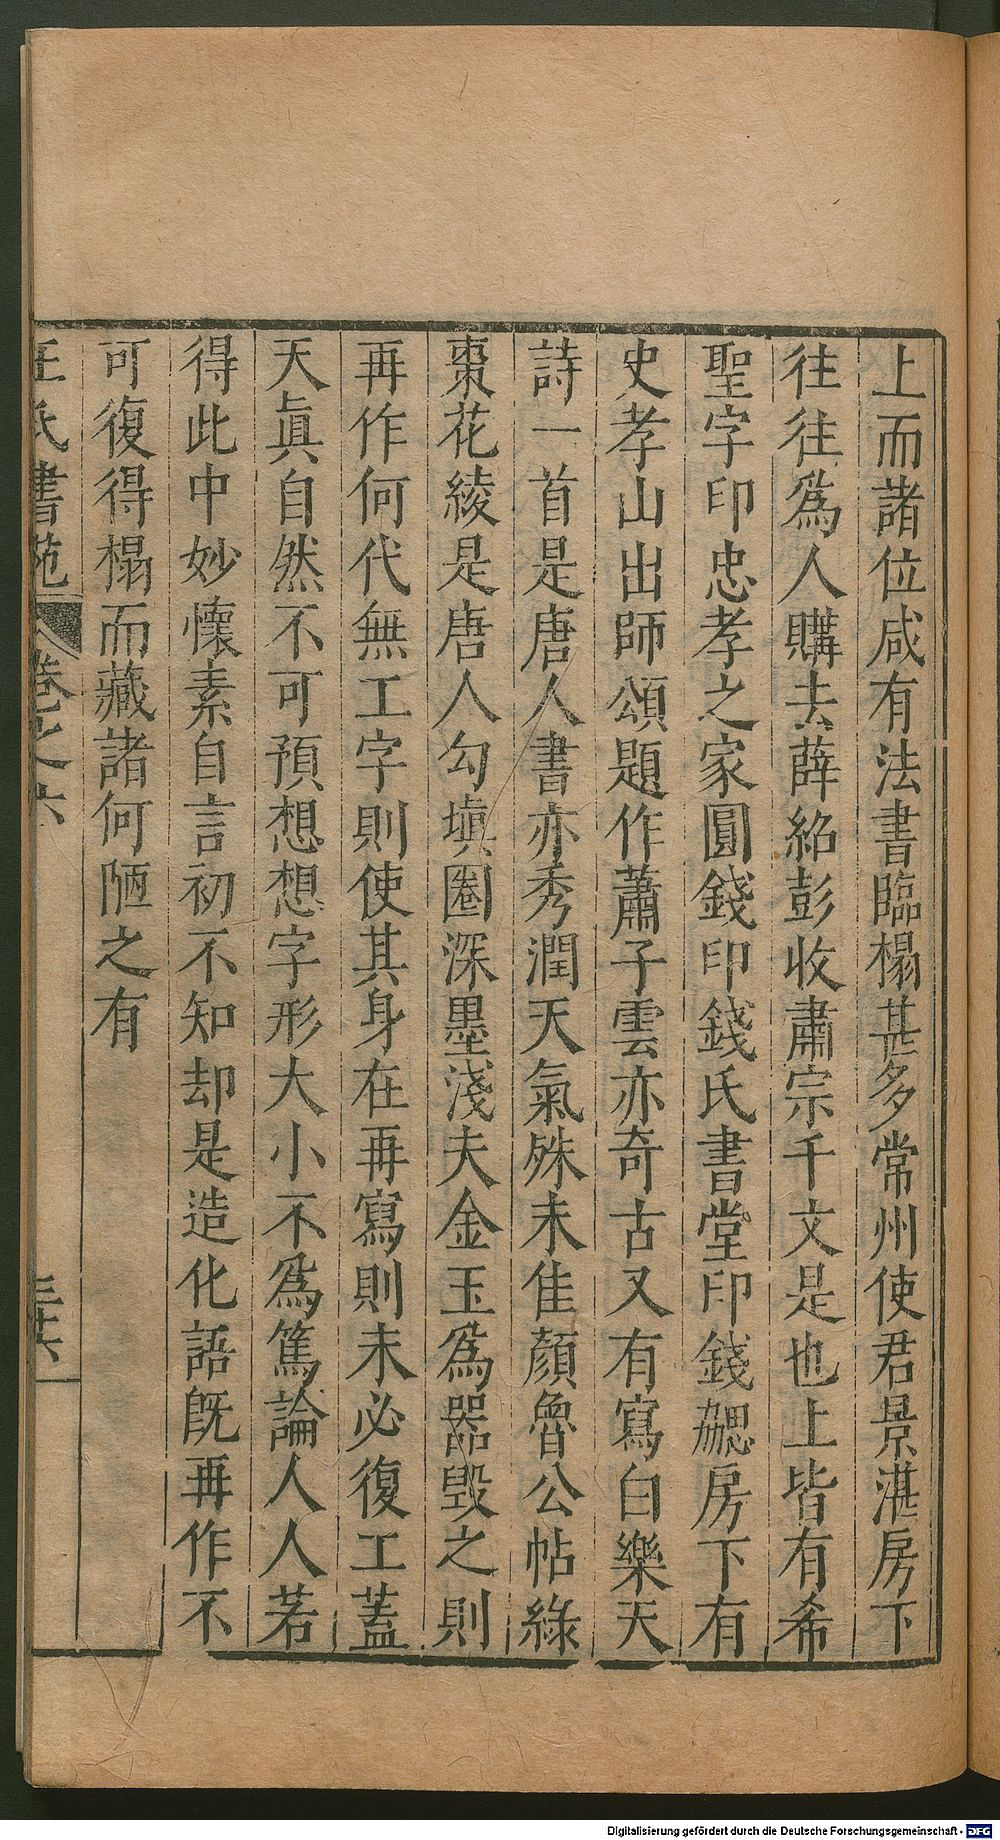 上而諸位咸有法書臨榻甚多常州使君景湛房下
往往爲人購去薛紹彭收肅宗千文是也上皆有希
聖字印忠孝之家圓錢印錢氏書堂印錢勰房下有
史孝山出師頌題作蕭子雲亦奇古又有寫白樂天
詩一首是唐人書亦秀潤天氣殊未佳顏魯公帖綠
棗花綾是唐人勾塡圈深墨淺夫金玉爲器毀之則
再作何代無工字則使其身在再寫則未必復工蓋
天眞自然不可預想想字形大小不爲篤論人人若
得此中妙懷素自言初不知却是造化語旣再作不
可復得榻而藏諸何陋之有
王氏書苑 卷之六 三十六
Digitalisierung gefördert durch die Deutsche Forschungsgemeinschaft - DFG